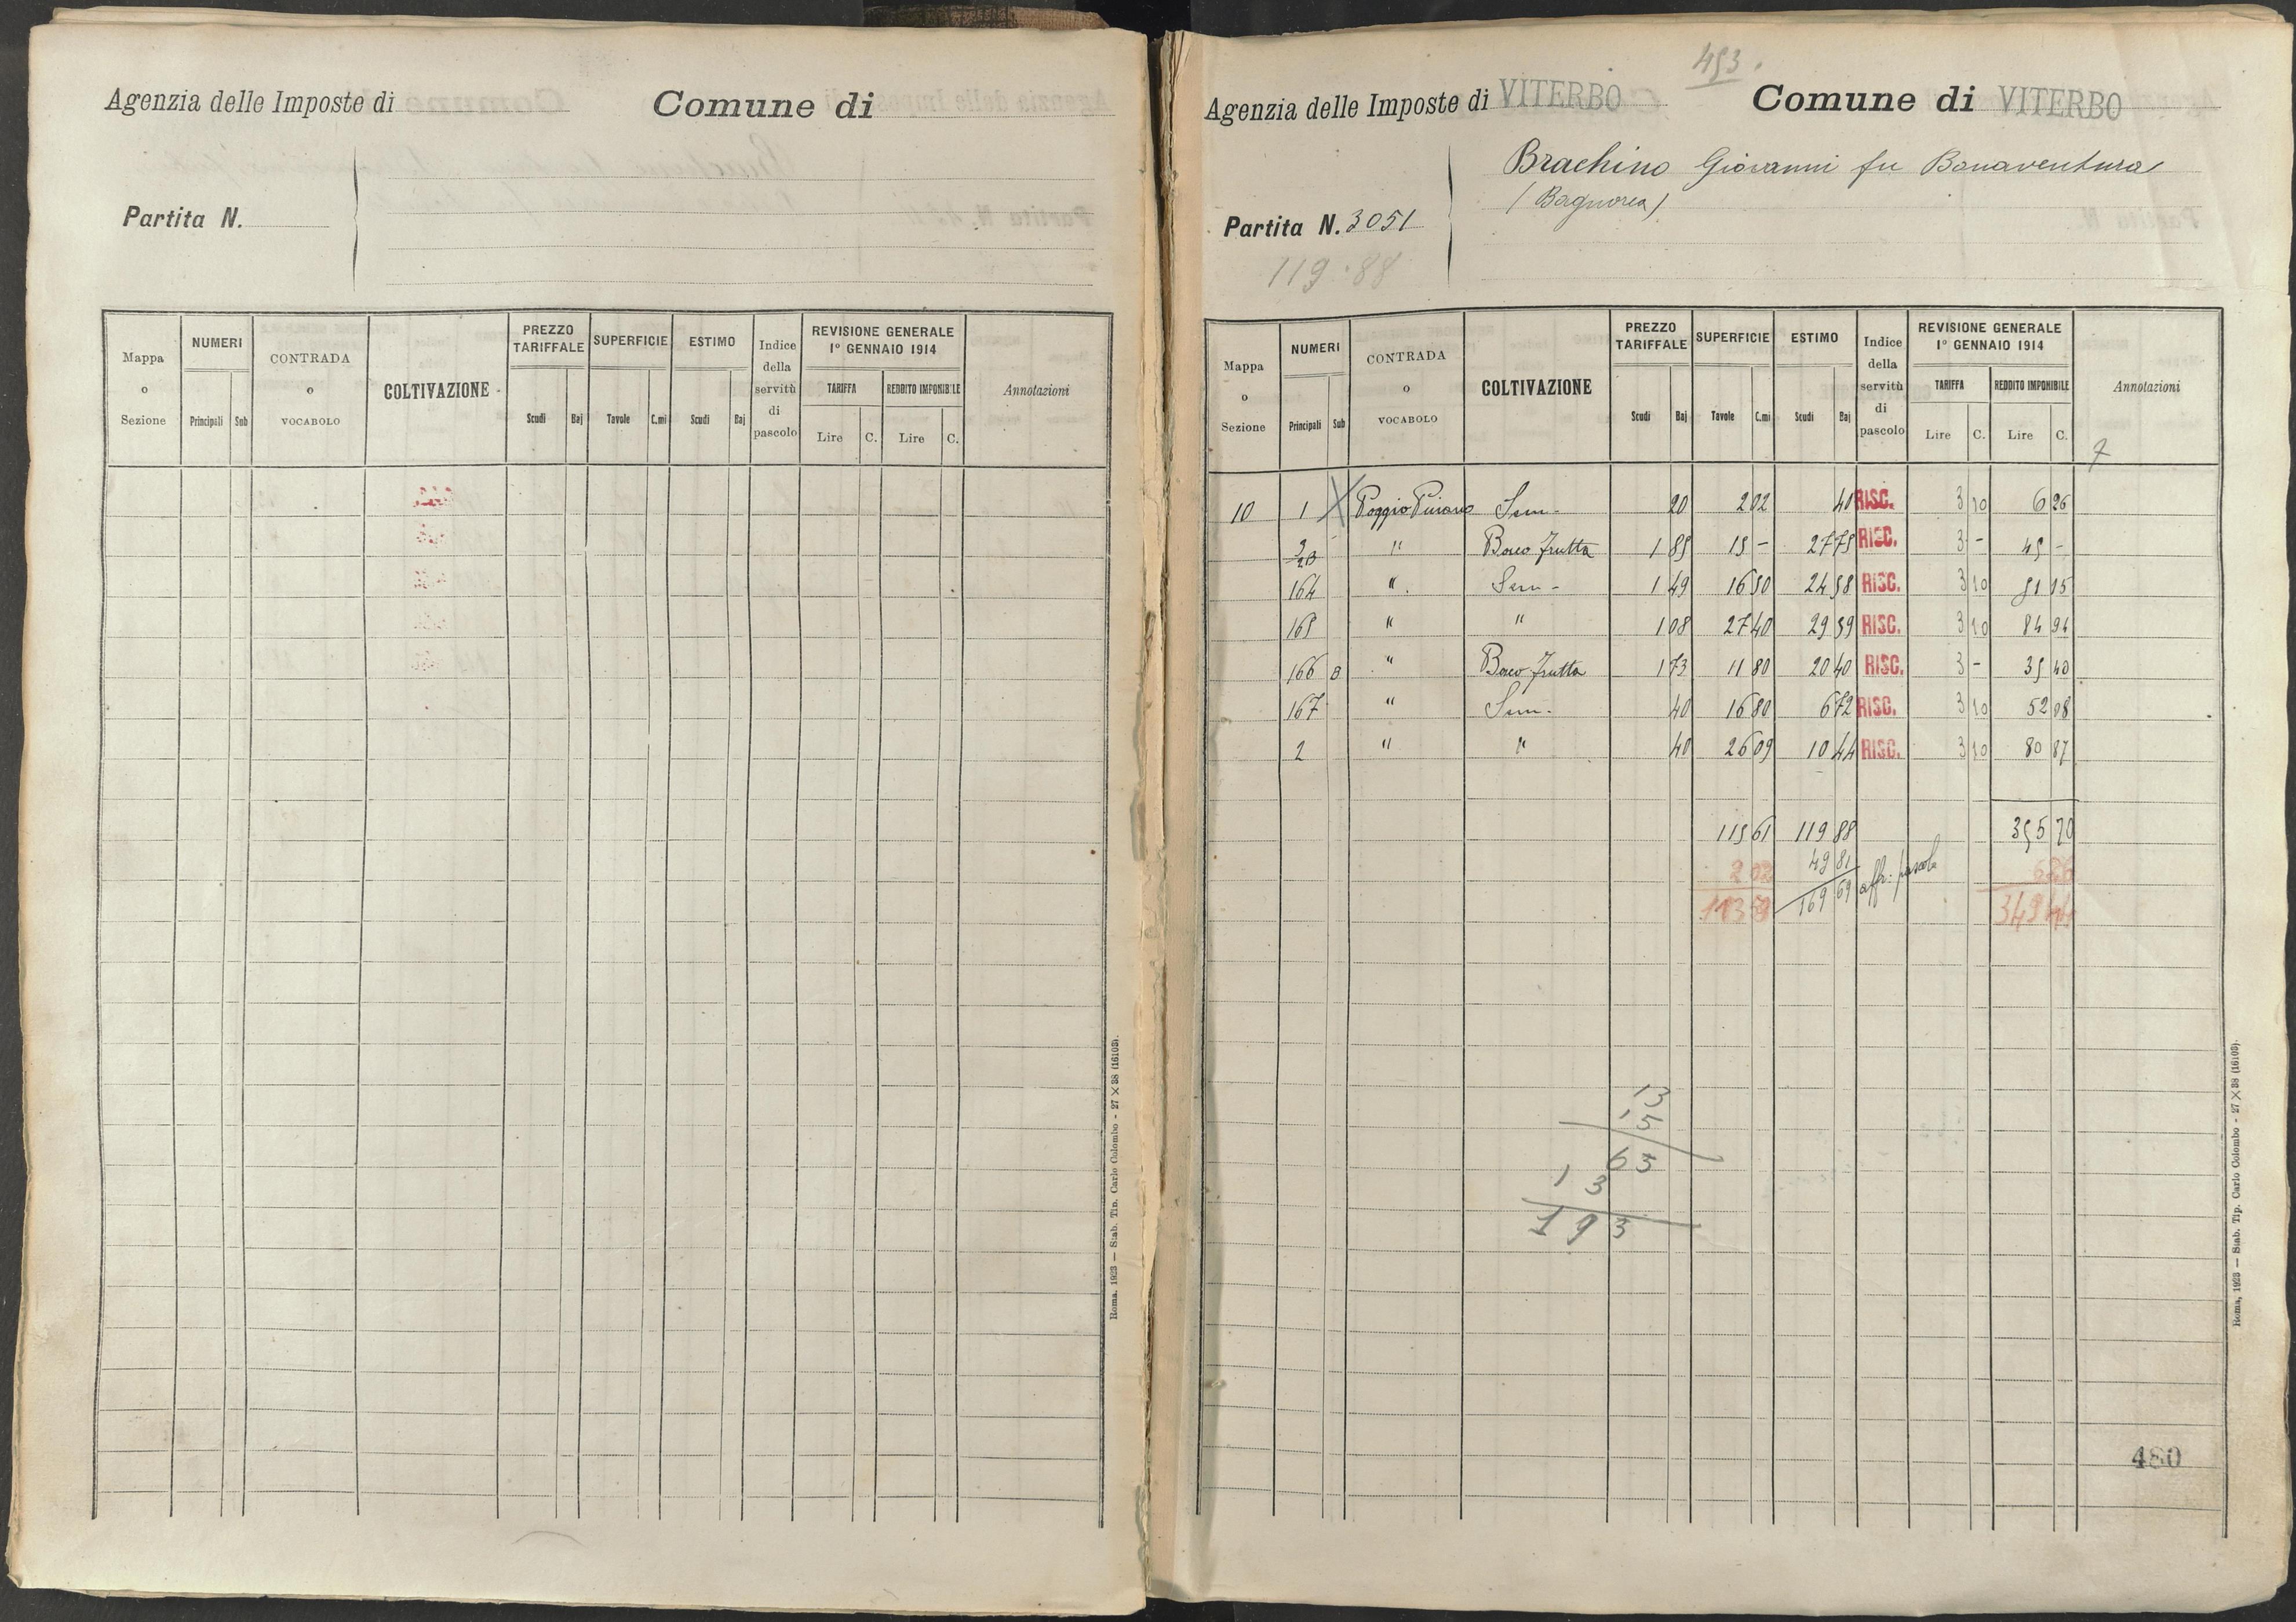 Agenzia delle Imposte di Comune di
Partita N.
Mappa o Sezione NUMERI Principali Sub CONTRADA o VOCABOLO COLTIVAZIONE PREZZO TARIFFALE Scudi Baj SUPERFICIE Tavole C.mi ESTIMO Scudi Baj Indice della servitù di pascolo REVISIONE GENERALE 1° GENNAIO 1914 TARIFFA Lire C. REDDITO IMPONIBILE Lire C. Annotazioni
Roma. 1923 — Stab. Tip. Carlo Colombo - 27 × 38 (16103).
453.
Agenzia delle Imposte di VITERBO Comune di VITERBO
Brachino Giovanni fu Bonaventura
(Bagnorea)
Partita N. 3051
119.88
Mappa o Sezione NUMERI Principali Sub CONTRADA o VOCABOLO COLTIVAZIONE PREZZO TARIFFALE Scudi Baj SUPERFICIE Tavole C.mi ESTIMO Scudi Baj Indice della servitù di pascolo REVISIONE GENERALE 1° GENNAIO 1914 TARIFFA Lire C. REDDITO IMPONIBILE Lire C. Annotazioni
7
10 1 X Poggio Sem. 20 2 02 40 RISC. 3 10 6 26
" Bosco frutta 1 85 15 - 27 75 RISC. 3 - 45 -
164 " Sem - 1 49 16 50 24 58 RISC. 3 10 51 15
165 " " 1 08 27 40 29 59 RISC. 3 10 84 94
166 B " Bosco frutta 1 73 11 80 20 40 RISC. 3 - 35 40
167 " Sem. 40 16 80 6 72 RISC. 3 10 52 08
2 " " 40 26 09 10 44 RISC. 3 10 80 87
115 61 119 88 355 70
2 02 49 81 affr: pascolo 6 26
113 59 169 69 349 44
13
15
65
13
193
480
Roma, 1923 — Stab. Tip. Carlo Colombo - 27 × 38 (16103).